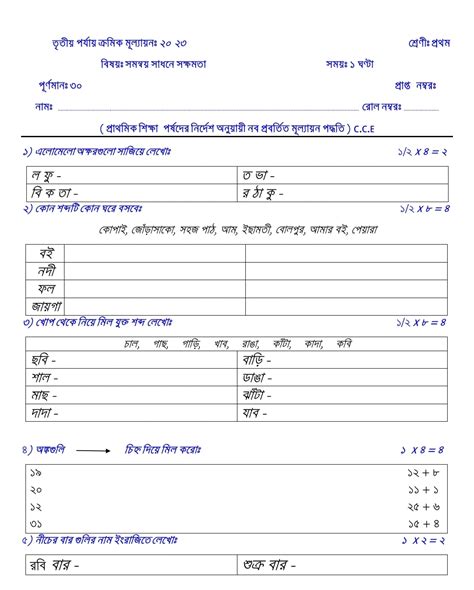 তৃতীয় পর্যায় ক্রমিক মূল্যায়নঃ ২০ ২৩ শ্রেণীঃ প্রথম
বিষয়ঃ সমন্বয় সাধনে সক্ষমতা সময়ঃ ১ ঘণ্টা
পূর্ণমানঃ ৩০ প্রাপ্ত নম্বরঃ
নামঃ রোল নম্বরঃ
( প্রাথমিক শিক্ষা পর্ষদের নির্দেশ অনুযায়ী নব প্রবর্তিত মূল্যায়ন পদ্ধতি ) C.C.E
১) এলোমেলো অক্ষরগুলো সাজিয়ে লেখোঃ ১/২ X ৪ = ২
ল ফু - ত ভা -
বি ক তা - র ঠা কু -
২) কোন শব্দটি কোন ঘরে বসবেঃ ১/২ X ৮ = ৪
কোপাই, জোঁড়াসাকো, সহজ পাঠ, আম, ইছামতী, বোলপুর, আমার বই, পেয়ারা
বই
নদী
ফল
জায়গা
৩) খোপ থেকে নিয়ে মিল যুক্ত শব্দ লেখোঃ ১/২ X ৮ = ৪
চাল, গাছ, গাড়ি, খাব, রাঙা, কাঁটা, কাদা, কবি
ছবি - বাড়ি -
শাল - ডাঙা -
মাছ - ঝাঁটা -
দাদা - যাব -
৪) অঙ্কগুলি ⟶ চিহ্ন দিয়ে মিল করোঃ ১ X ৪ = ৪
১৯ ১২ + ৮
২০ ১১ + ১
১২ ২৫ + ৬
৩১ ১৫ + ৪
৫) নীচের বার গুলির নাম ইংরাজিতে লেখোঃ ১ X ২ = ২
রবি বার - শুক্র বার -